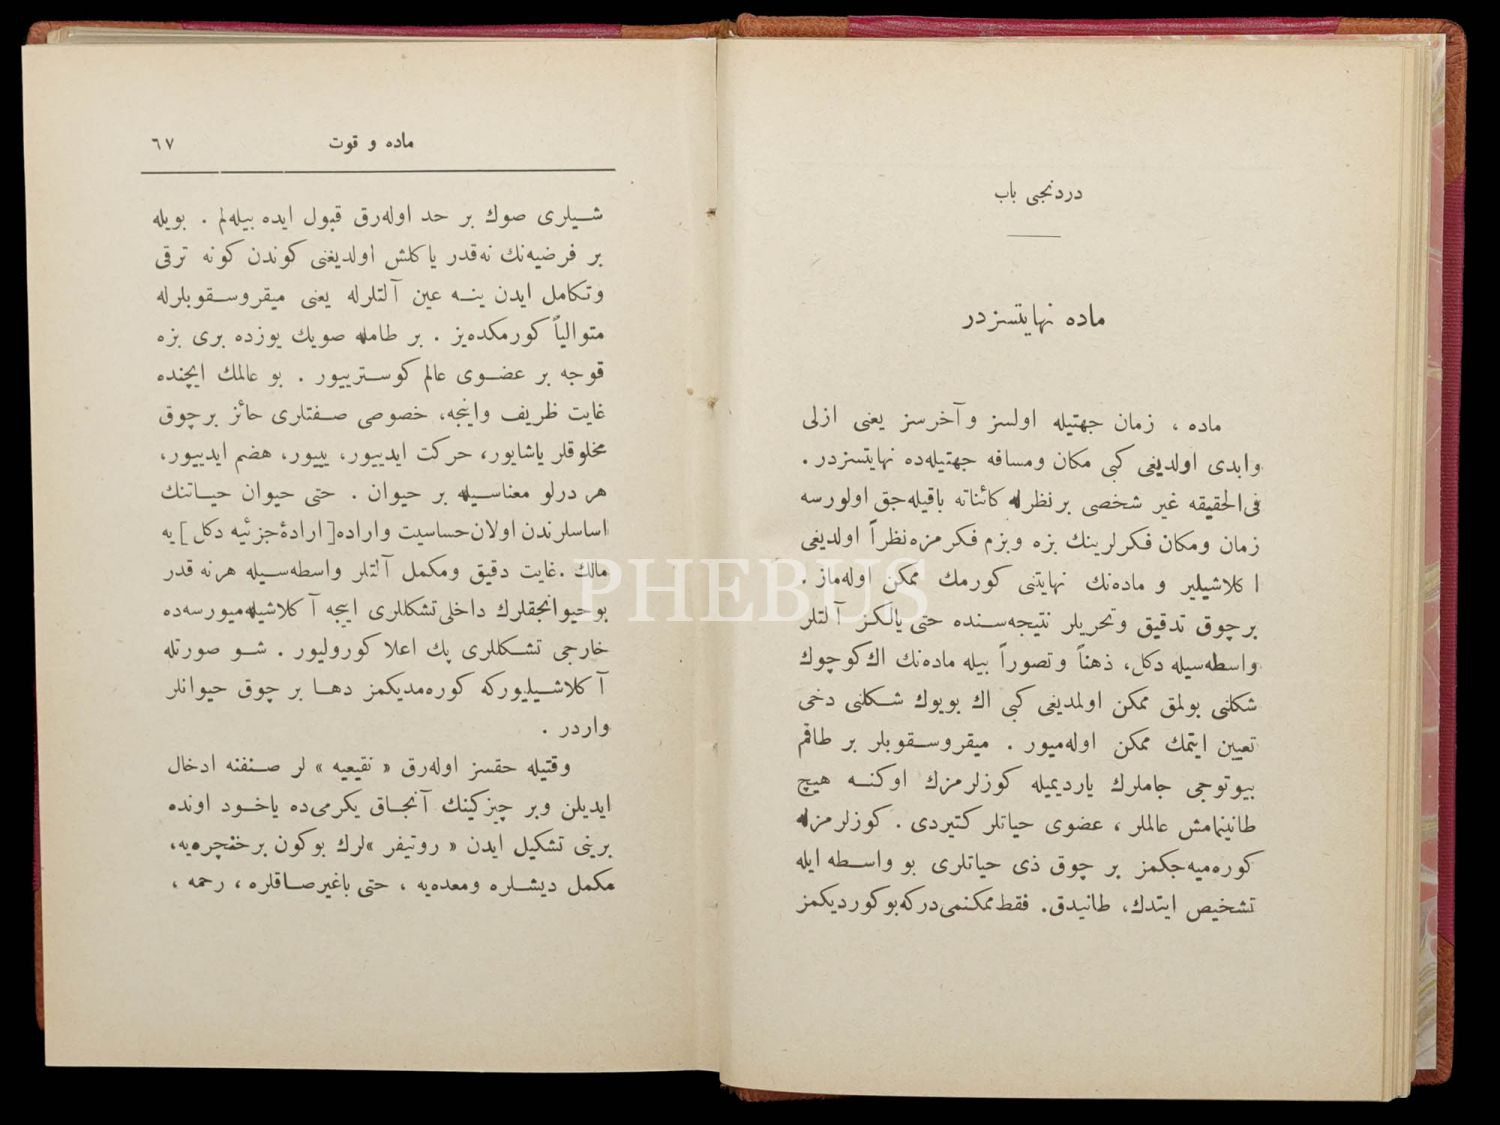 دردنجی باب
ماده نهایتسزدر
ماده ، زمان جهتیله اولسز وآخرسز یعنی ازلی
وابدی اولدیغی کبی مکان ومسافه جهتیله‌ده نهایتسزدر .
فی‌الحقیقه غیر شخصی برنظرله کائناته باقیله‌جق اولورسه
زمان ومکان فکرلرینك بزه وبزم فکرمزه‌نظراً اولدیغی
اکلاشیلیر و ماده‌نك نهایتنی کورمك ممکن اوله‌ماز .
برچوق تدقیق وتحریلر نتیجه‌سنده حتی یالکز آلتلر
واسطه‌سیله دکل، ذهناً وتصوراً بیله ماده‌نك اك‌کوچوك
شکلنی بولمق ممکن اولمدیغی کبی اك بویوك شکلنی دخی
تعیین ایتمك ممکن اوله‌میور . میقروسقوبلر بر طاقم
بیوتوجی جاملرك یاردیمیله کوزلرمزك اوکنه هیچ
طانینمامش عالملر ، عضوی حیاتلر کتیردی . کوزلرمزله
کوره‌میه‌جکمز بر چوق ذی حیاتلری بو واسطه ایله
تشخیص ایتدك، طانیدق. فقط‌ممکنمی‌درکه‌بوکوردیکمز
ماده و قوت ٦٧
شیلری صوك بر حد اوله‌رق قبول ایده بیله‌لم . بویله
بر فرضیه‌نك نه‌قدر یاکلش اولدیغنی کوندن کونه ترقی
وتکامل ایدن ینه عین آلتلرله یعنی میقروسقوبلرله
متوالیاً کورمکده‌یز . بر طامله صویك یوزده بری بزه
قوجه بر عضوی عالم کوسترییور . بو عالمك ایچنده
غایت ظریف واینجه، خصوصی صفتلری حائز برچوق
مخلوقلر یاشایور، حرکت ایدییور، یییور، هضم ایدییور،
هر درلو معناسیله بر حیوان . حتی حیوان حیاتنك
اساسلرندن اولان‌حساسیت واراده[ارادۀ‌جزئیه دکل]یه
مالك .غایت دقیق ومکمل آلتلر واسطه‌سیله هرنه قدر
بوحیوانجقلرك داخلی‌تشکللری ایجه آکلاشیله‌میورسه‌ده
خارجی تشکللری پك اعلا کورولیور . شو صورتله
آکلاشیلیورکه کوره‌مدیکمز دها بر چوق حیوانلر
واردر .
وقتیله حقسز اوله‌رق « نقیعیه » لر صنفنه ادخال
ایدیلن وبر چیزکینك آنجاق یکرمی‌ده یاخود اونده
برینی تشکیل ایدن « روتیفر »لرك بوکون برخنچره‌یه،
مکمل دیشلره ومعده‌یه ، حتی باغیرصاقلره ، رحمه ،
PHEBUS